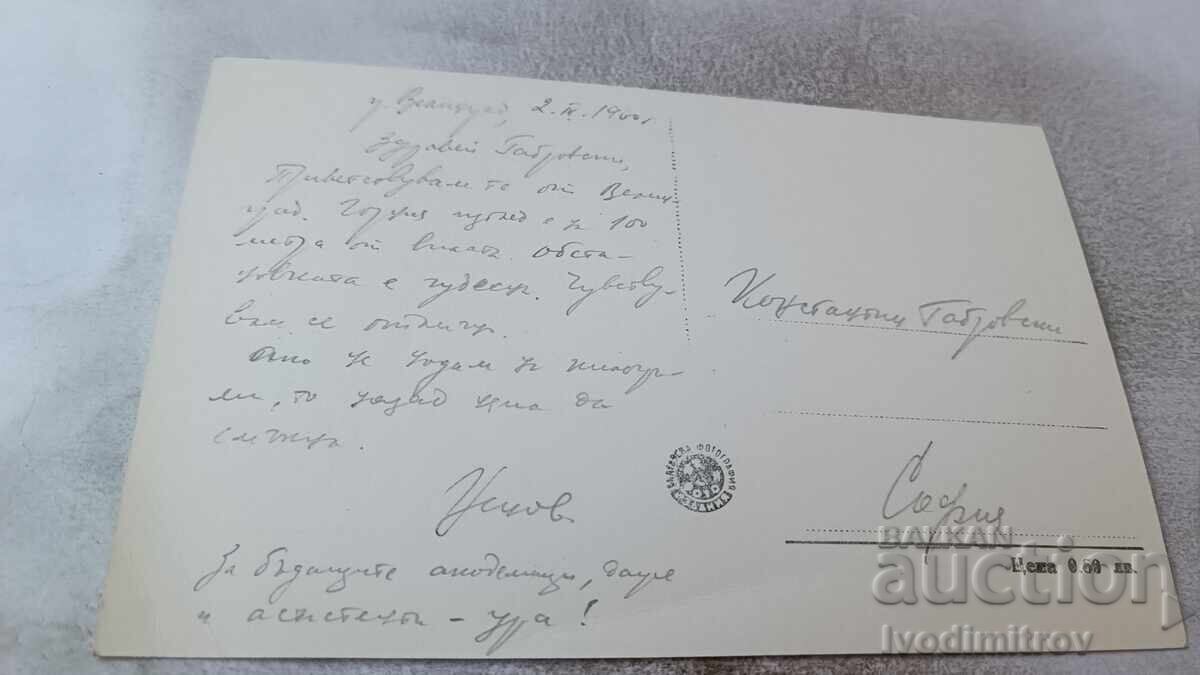 2. IV. 1960 г.
Здравей Габровски,
Приветствувам те от Велин-
град. Горния изглед е на 100
метра от вилата. Обста-
новката е чудесна. Чувству-
вам се отлично.
Ако не ходам за
ли, то да
За бъдащите академици, даже
и асистенти – ура!
Константин Габровски
София
БЪЛГАРСКА ФОТОГРАФИЯ
Цена 0.60 лв.
BALKAN
auction
Ivodimitrov